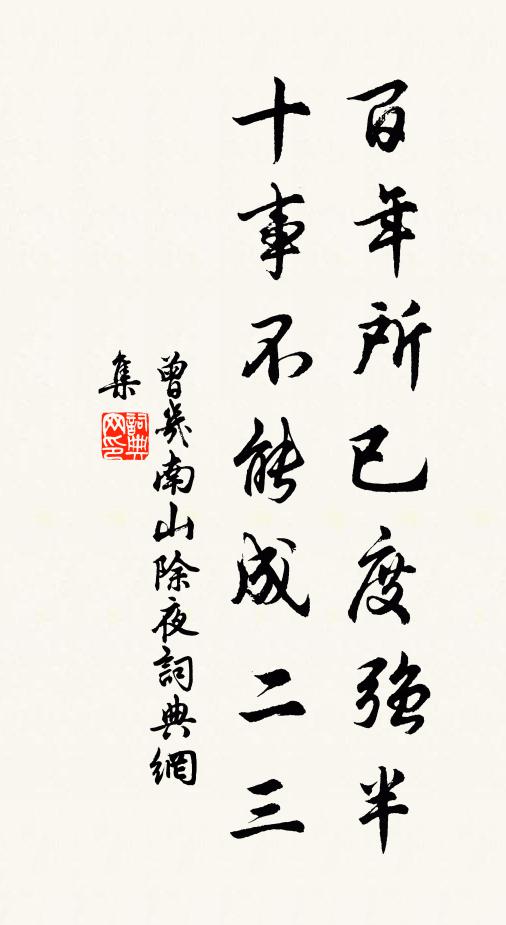 百年所已度強半
十事不能成二三
曾幾南山除夜詞典網
集
詞典
网印